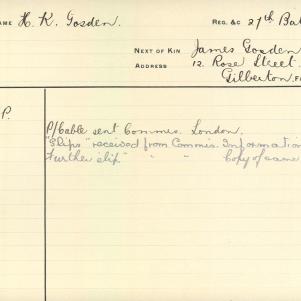 NAME H. K. Gosden. REG. &c 27th Bat
NEXT OF KIN James Gosden
ADDRESS 12. Rose Street.
Gilberton.
P.
P/Cable sent Commis. London.
"Slips" received from Commis. Information
Further slip " " Copy of same